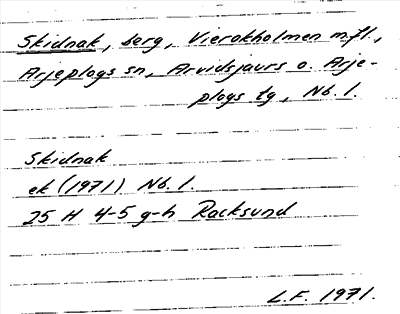 Skidnak, berg, Vierokholmen m.fl.,
Arjeplogs sn, Arvidsjaurs o. Arje-
plogs tg, Nb. l.
Skidnak
ek (1971) Nb. l.
25 H 4-5 g-h Racksund
L.F. 1971.